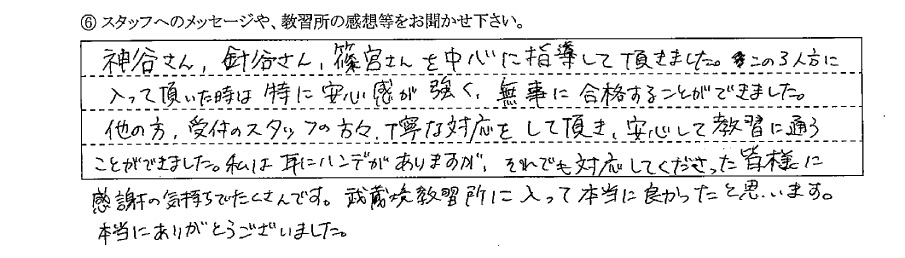 ⑥ スタッフへのメッセージや、教習所の感想等をお聞かせ下さい。
神谷さん, 針谷さん, 篠宮さんを中心に指導して頂きました。この3人方に
入って頂いた時は特に安心感が強く、無事に合格することができました。
他の方, 受付のスタッフの方々, 丁寧な対応をして頂き、安心して教習に通う
ことができました。私は耳にハンデがありますが、それでも対応してくださった皆様に
感謝の気持ちでたくさんです。武蔵境教習所に入って本当に良かったと思います。
本当にありがとうございました。